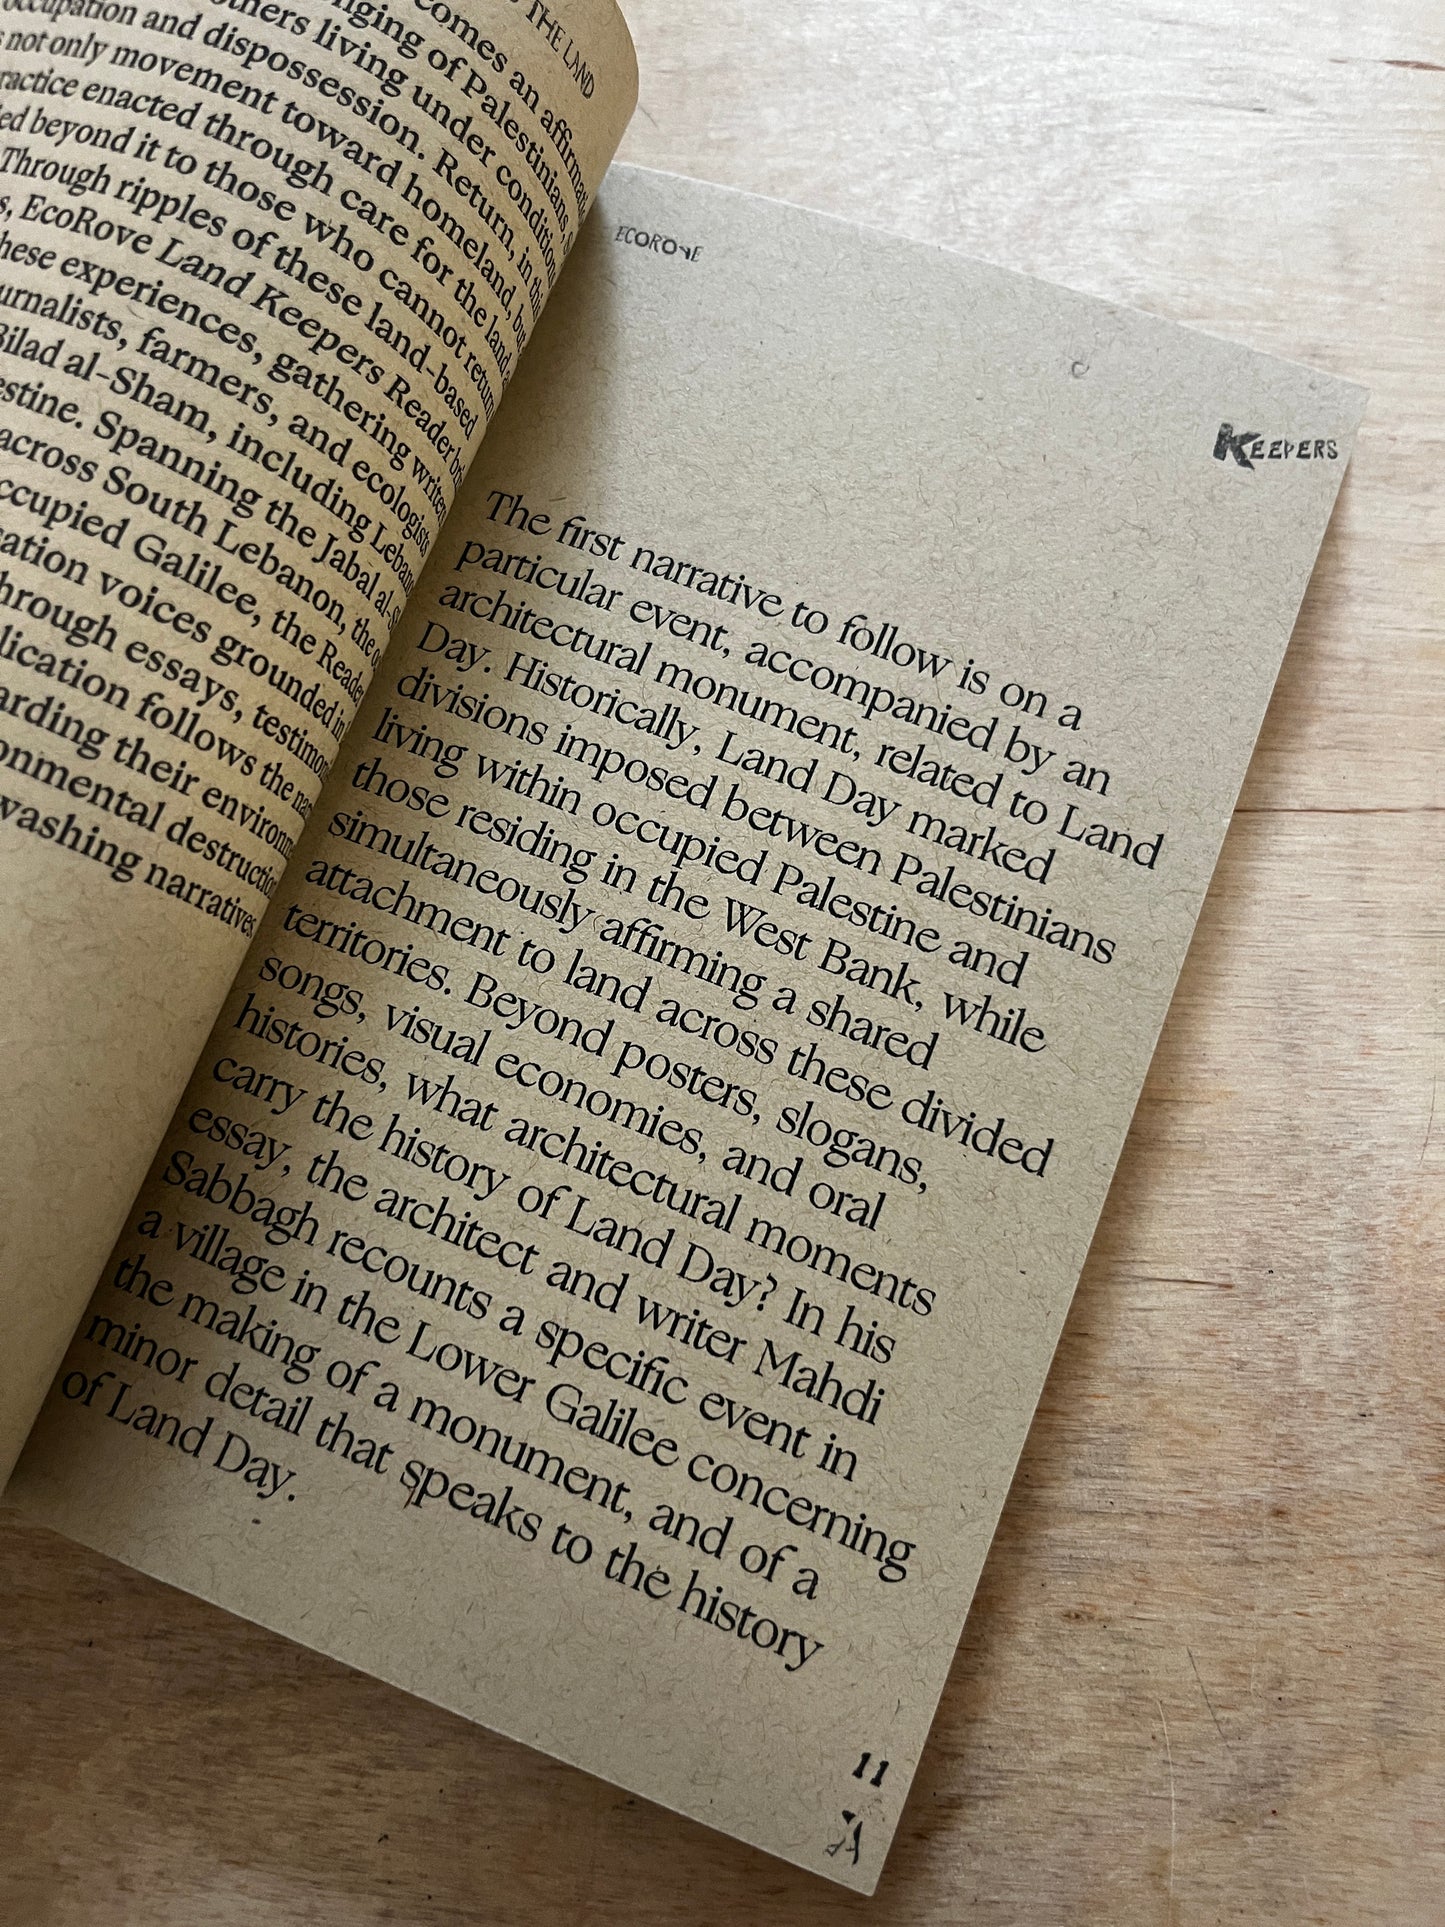 THE LAND
comes an
of Palestinians,
others living under
occupation and dispossession. Return, in
not only movement toward homeland,
enacted through care for the land
beyond it to those who cannot return
Through ripples of these land-based
EcoRove Land Keepers Reader
these experiences, gathering
farmers, and ecologists
Bilad al-Sham, including
Spanning the Jabal
across South Lebanon, the
Galilee, the Reader
voices grounded in
through essays,
follows the
their
destruction
narratives
ECOROVE
KEEPERS
The first narrative to follow is on a
particular event, accompanied by an
architectural monument, related to Land
Day. Historically, Land Day marked
divisions imposed between Palestinians
living within occupied Palestine and
those residing in the West Bank, while
simultaneously affirming a shared
attachment to land across these divided
territories. Beyond posters, slogans,
songs, visual economies, and oral
histories, what architectural moments
carry the history of Land Day? In his
essay, the architect and writer Mahdi
Sabbagh recounts a specific event in
a village in the Lower Galilee concerning
the making of a monument, and of a
minor detail that speaks to the history
of Land Day.
11